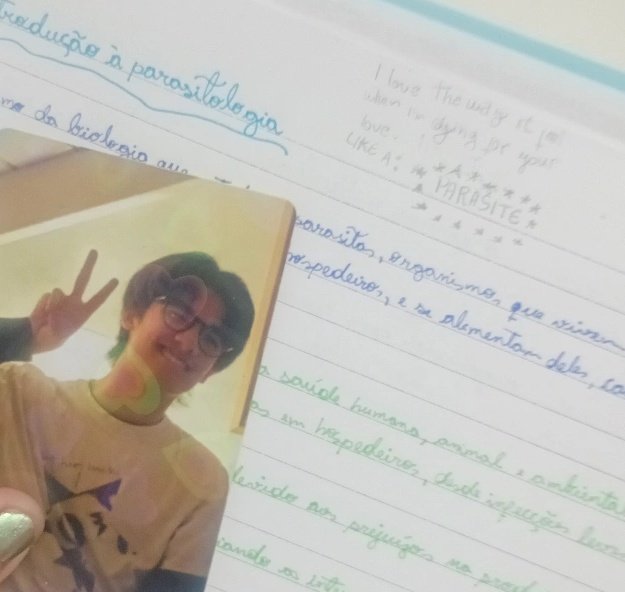 Introdução à parasitologia
I love the way it feel
when i'm dying for your
love.
LIKE A:
PARASITE
da biologia que
parasitas, organismos que vivem
hospedeiros, e se alimentam deles,
saúde humana, animal e ambiental
em hospedeiros, desde infecções leves
devido aos prejuízos na